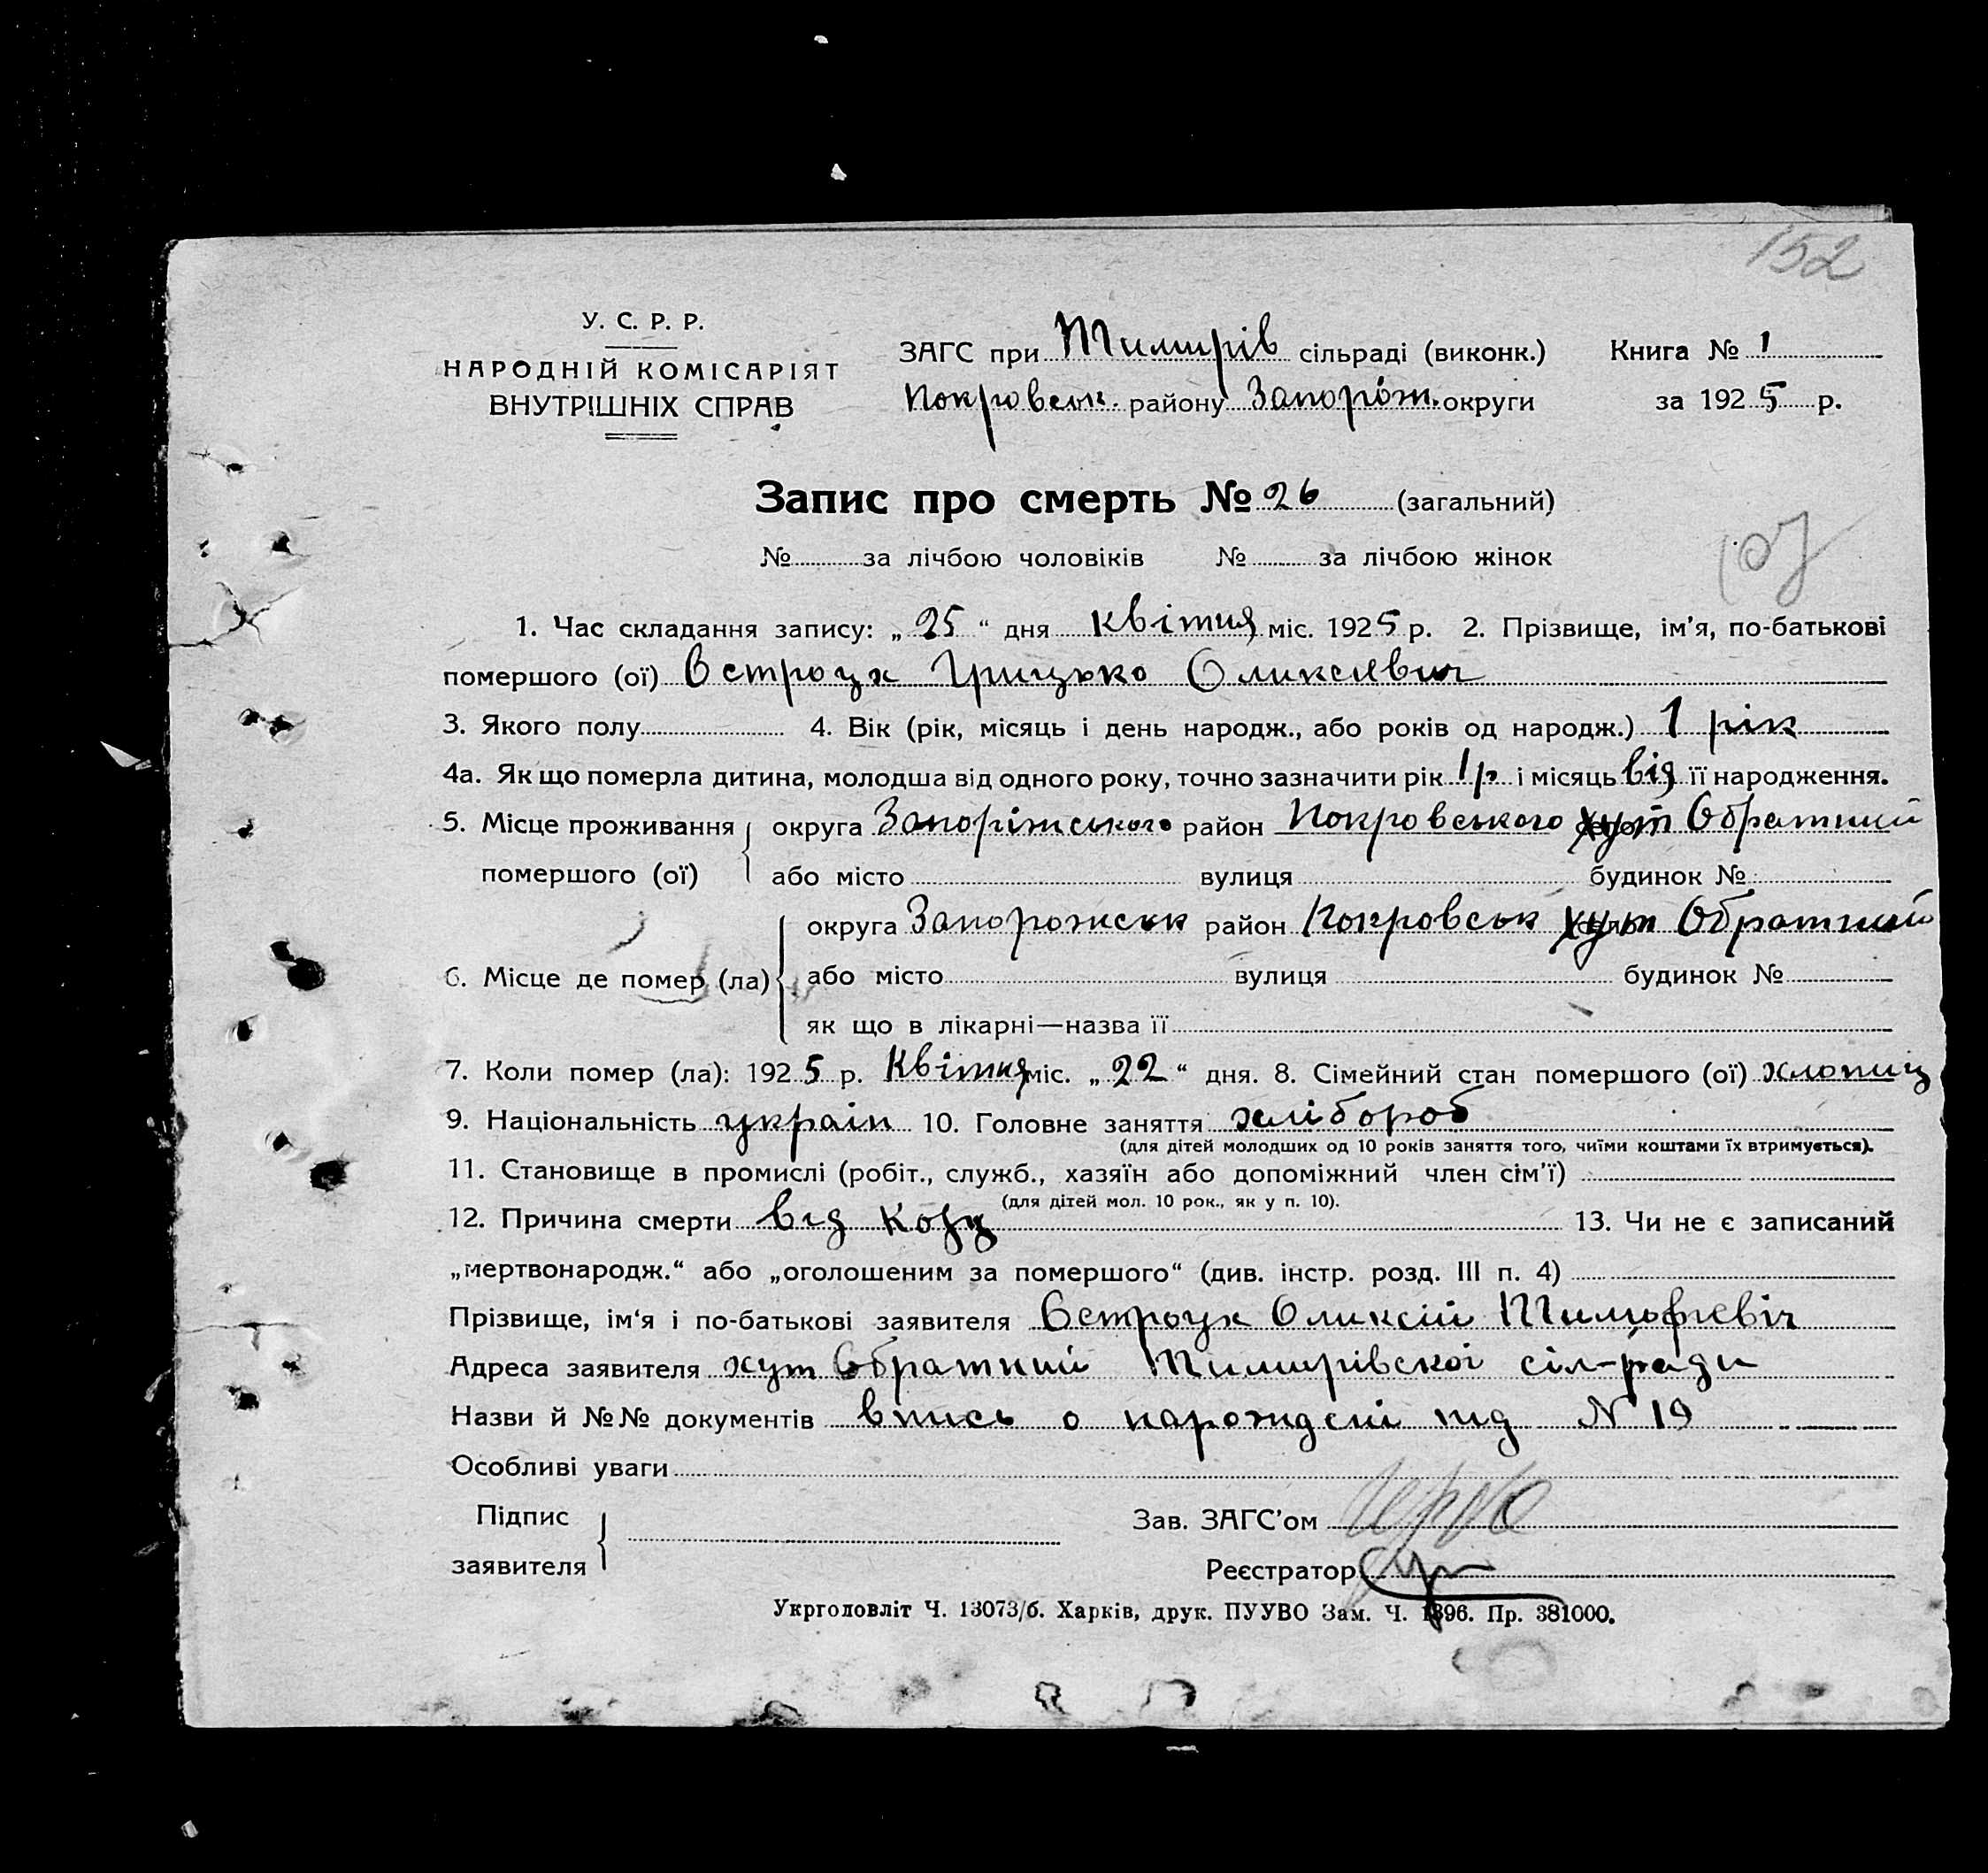 152
У. С. Р. Р.
НАРОДНІЙ КОМІСАРІЯТ
ВНУТРІШНІХ СПРАВ
ЗАГС при Тимирів сільраді (виконк.) Книга № 1
Покровськ. району Запорож. округи за 1925 р.
Запис про смерть № 26 (загальний)
№ за лічбою чоловіків № за лічбою жінок
1. Час складання запису: „25“ дня квітня міс. 1925 р. 2. Прізвище, ім'я, по-батькові
помершого (ої) Остроух Грицько Оликсієвич
3. Якого полу 4. Вік (рік, місяць і день народж., або років од народж.) 1 рік
4а. Як що померла дитина, молодша від одного року, точно зазначити рік 1 р. і місяць від її народження.
5. Місце проживання округа Запоріжського район Покровського хут Обратний
помершого (ої) або місто вулиця будинок №
округа Запорожськ район Покровськ хут Обратний
6. Місце де помер (ла) або місто вулиця будинок №
як що в лікарні—назва її
7. Коли помер (ла): 1925 р. Квітня міс. „22“ дня. 8. Сімейний стан помершого (ої) хлопиц
9. Національність україн 10. Головне заняття хлібороб
(для дітей молодших од 10 років заняття того, чиїми коштами їх втримується).
11. Становище в промислі (робіт., служб., хазяїн або допоміжний член сім'ї)
(для дітей мол. 10 рок., як у п. 10).
12. Причина смерти від кору 13. Чи не є записаний
„мертвонародж.“ або „оголошеним за помершого“ (див. інстр. розд. III п. 4)
Прізвище, ім'я і по-батькові заявителя Остроух Оликсій Тимофієвіч
Адреса заявителя хут Обратний Тимирівскої сіл-ради
Назви й №№ документів впись о нарождені під № 19
Особливі уваги
Підпис Зав. ЗАГС'ом
заявителя Реєстратор
Укрголовліт Ч. 13073/б. Харків, друк. ПУУВО Зам. Ч. 1396. Пр. 381000.